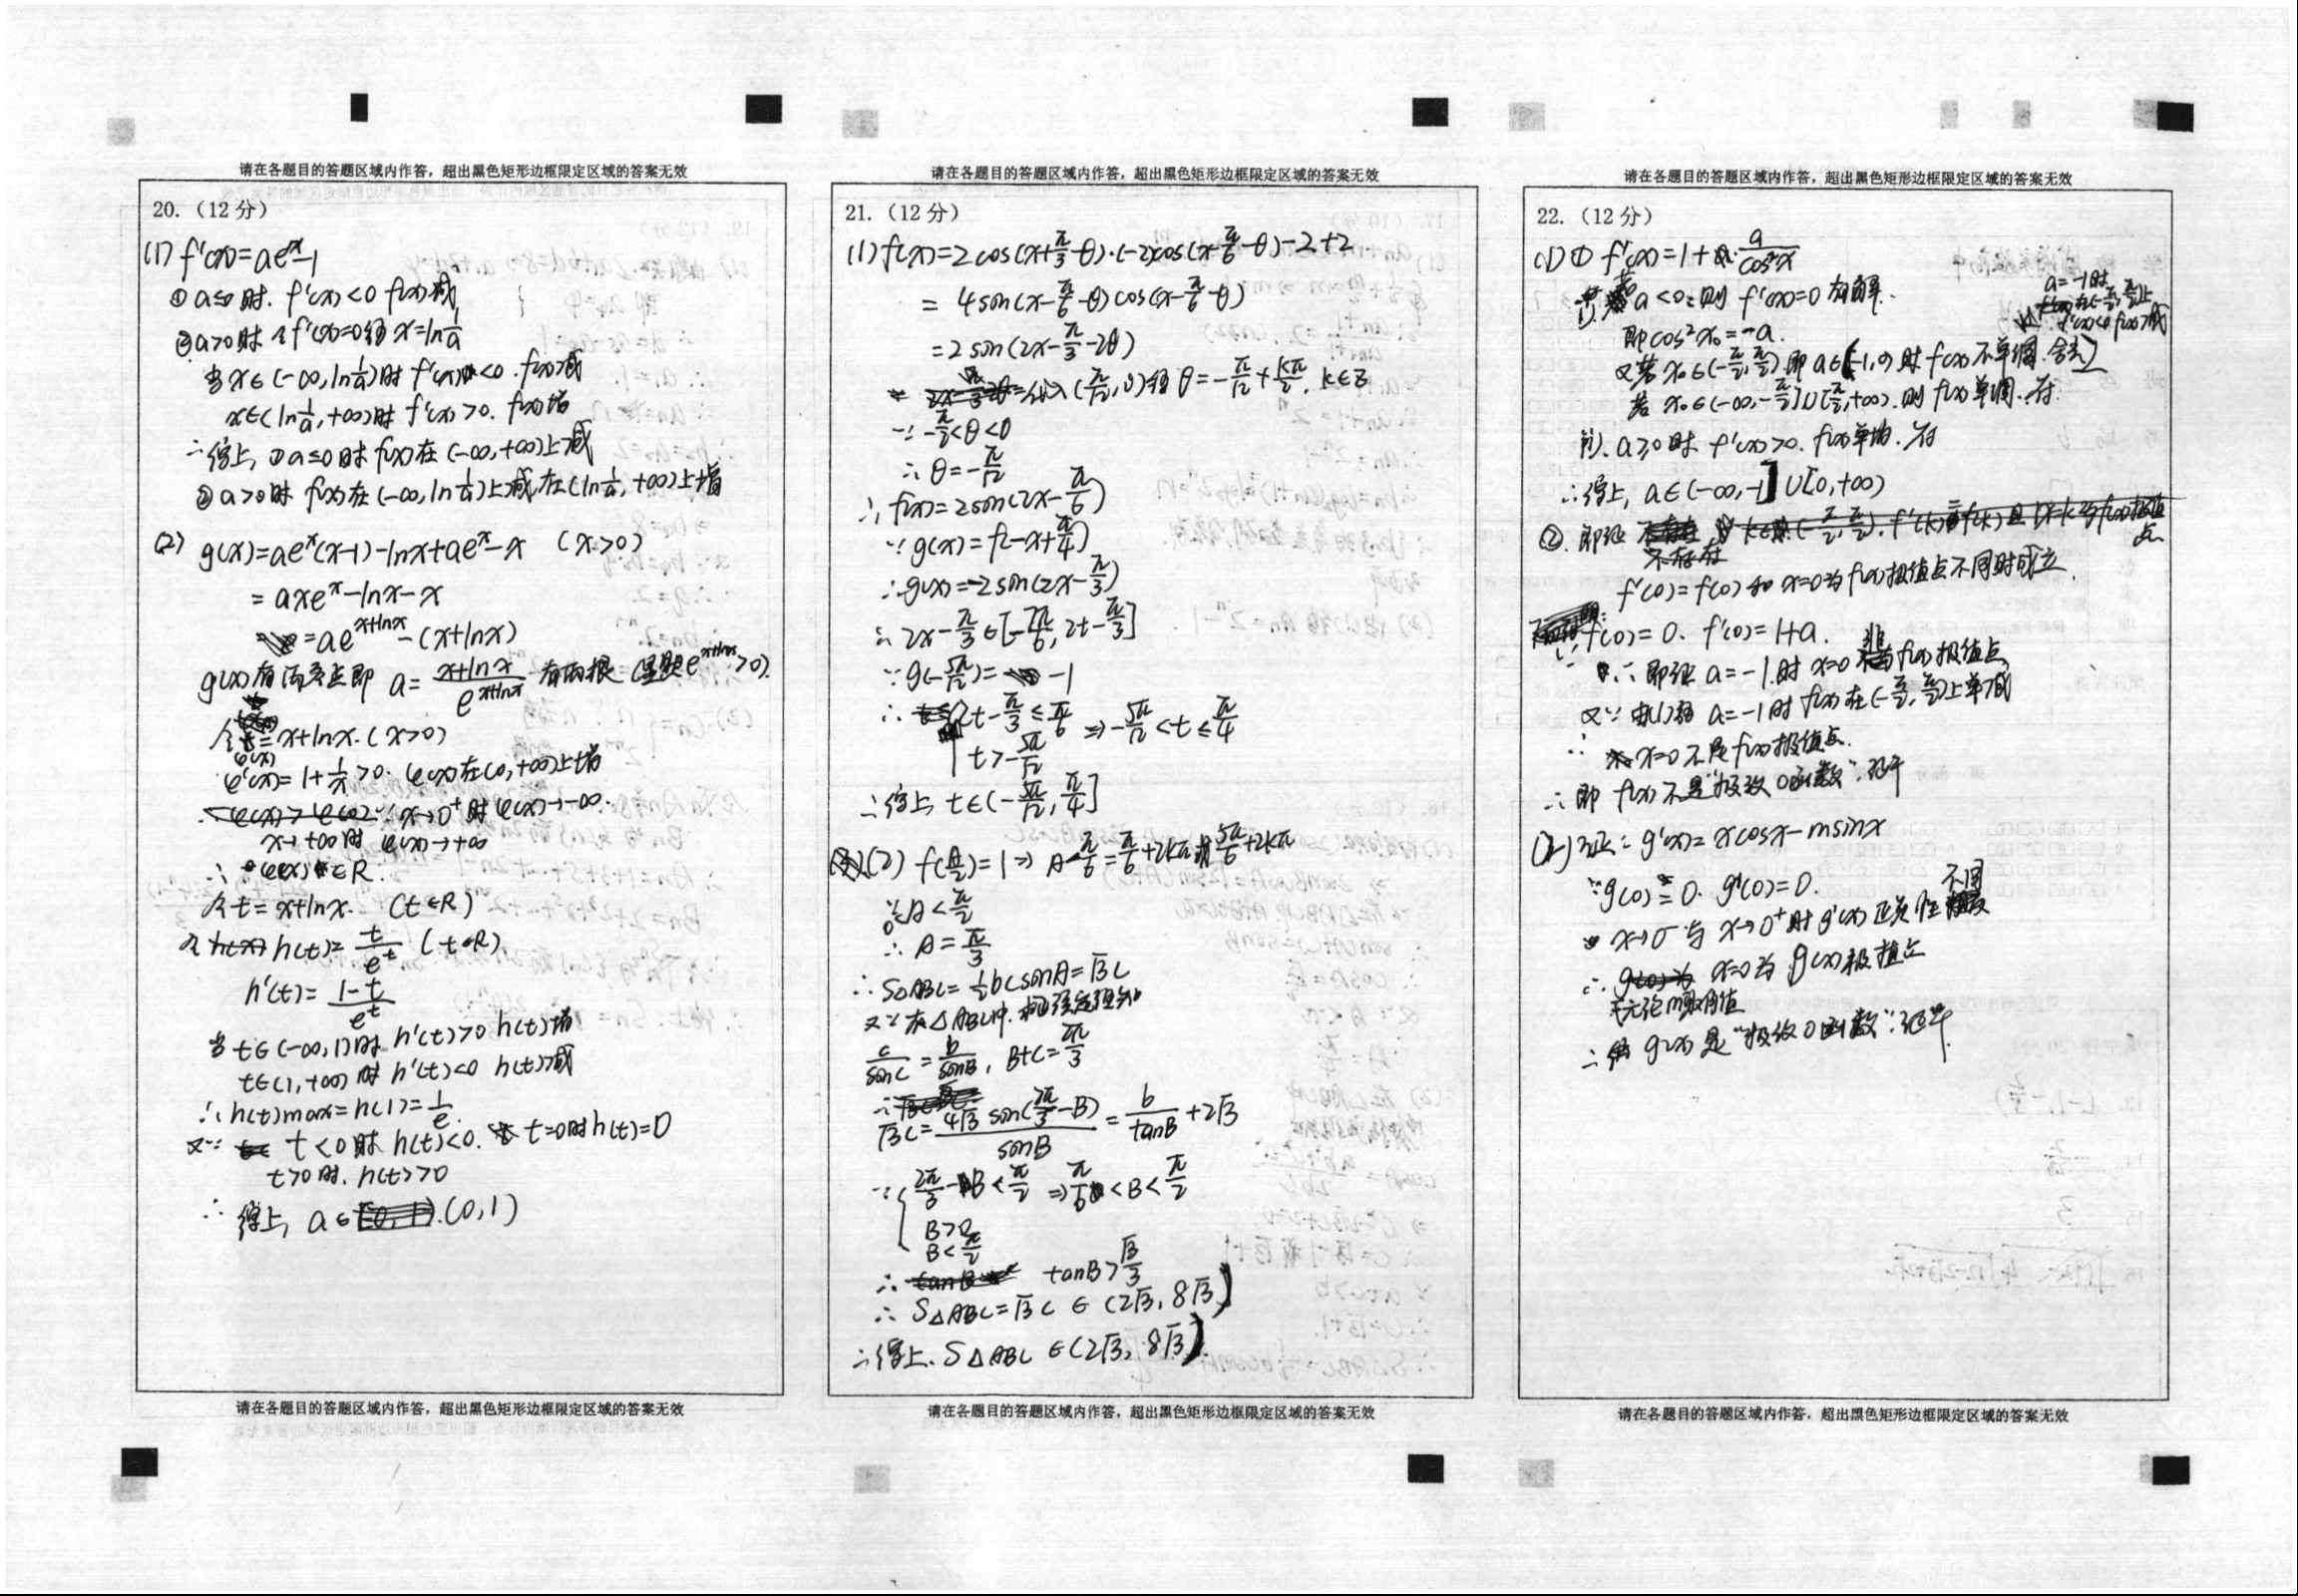 请在各题目的答题区域内作答，超出黑色矩形边框限定区域的答案无效
20.（12分）
(1) f'(x)=ae^x-1
①a≤0时. f'(x)<0 f(x)减
②a>0时 令f'(x)=0得 x=ln1/a
当x∈(-∞,ln1/a)时 f'(x)<0. f(x)减
x∈(ln1/a,+∞)时 f'(x)>0. f(x)增
∴综上, ①a≤0时 f(x)在(-∞,+∞)上减
②a>0时 f(x)在(-∞,ln1/a)上减,在(ln1/a,+∞)上增
(2) g(x)=ae^x(x-1)-lnx+ae^x-x (x>0)
=axe^x-lnx-x
=ae^(x+lnx)-(x+lnx)
g(x)有两零点即 a=(x+lnx)/e^(x+lnx) 有两根 (显然e^(x+lnx)>0).
令φ(x)=x+lnx.(x>0)
φ'(x)=1+1/x>0. φ(x)在(0,+∞)上增
∵x→0⁺时φ(x)→-∞.
x→+∞时 φ(x)→+∞
∴φ(x)∈R.
令t=x+lnx. (t∈R)
令h(t)=t/e^t (t∈R)
h'(t)=(1-t)/e^t
当t∈(-∞,1)时 h'(t)>0 h(t)增
t∈(1,+∞)时 h'(t)<0 h(t)减
∴h(t)max=h(1)=1/e.
又∵ t<0时 h(t)<0. t=0时h(t)=0
t>0时. h(t)>0
∴综上, a∈(0,1)
请在各题目的答题区域内作答，超出黑色矩形边框限定区域的答案无效
请在各题目的答题区域内作答，超出黑色矩形边框限定区域的答案无效
21.（12分）
(1)f(x)=2cos(x+π/3-θ)·(-2)cos(x-π/6-θ)-2+2
=4sin(x-π/6-θ)cos(x-π/6-θ)
=2sin(2x-π/3-2θ)
代入(π/12,0)得θ=-π/12+kπ/2, k∈Z
∵-π/2<θ<0
∴θ=-π/12
∴f(x)=2sin(2x-π/6)
∵g(x)=f(-x+π/4)
∴g(x)=-2sin(2x-π/3)
∴2x-π/3∈[-7π/6,2t-π/3]
∵g(-5π/12)=-1
∴2t-π/3≤π/6 ⇒-5π/12<t≤π/4
t>-5π/12
∴综上 t∈(-5π/12,π/4]
(2) f(A/2)=1⇒A-π/6=π/6+2kπ或5π/6+2kπ
∵0<A<π/2
∴A=π/3
∴S△ABC=1/2bcsinA=√3c
又∵在△ABC中.由正弦定理知
c/sinC=b/sinB, B+C=2π/3
√3c=4√3sin(2π/3-B)/sinB=b/tanB+2√3
∵{2π/3-B<π/2 ⇒π/6<B<π/2
B>0
B<π/2
∴tanB>√3/3
∴S△ABC=√3c∈(2√3,8√3)
∴综上. S△ABC∈(2√3,8√3).
请在各题目的答题区域内作答，超出黑色矩形边框限定区域的答案无效
请在各题目的答题区域内作答，超出黑色矩形边框限定区域的答案无效
22.（12分）
(1)① f'(x)=1+a/cos²x
i).若a<0:则 f'(x)=0有解.
即cos²x₀=-a.
a=-1时
f'(x)<0 f(x)减
又若x₀∈(-π/2,π/2).即a∈(-1,0)时f(x)不单调.舍去
若x₀∈(-∞,-π/2]∪[π/2,+∞).则f(x)单调.符
ii).a≥0时 f'(x)>0. f(x)单增.符
∴综上, a∈(-∞,-1]∪[0,+∞)
②.即证
不存在
f'(0)=f(0)和x=0为f(x)极值点不同时成立.
∵f(0)=0. f'(0)=1+a.
∴即证 a=-1时 x=0非f(x)极值点
又∵由(1)知 a=-1时 f(x)在(-π/2,π/2)上单减
∴x=0不是f(x)极值点.
∴即 f(x)不是"极致0函数".证毕
(2)证: g'(x)=xcosx-msinx
∵g(0)=0. g'(0)=0.
x→0⁻与x→0⁺时g'(x)正负性不同
∴x=0为g(x)极值点
无论m取何值
∴g(x)是"极致0函数".证毕.
请在各题目的答题区域内作答，超出黑色矩形边框限定区域的答案无效